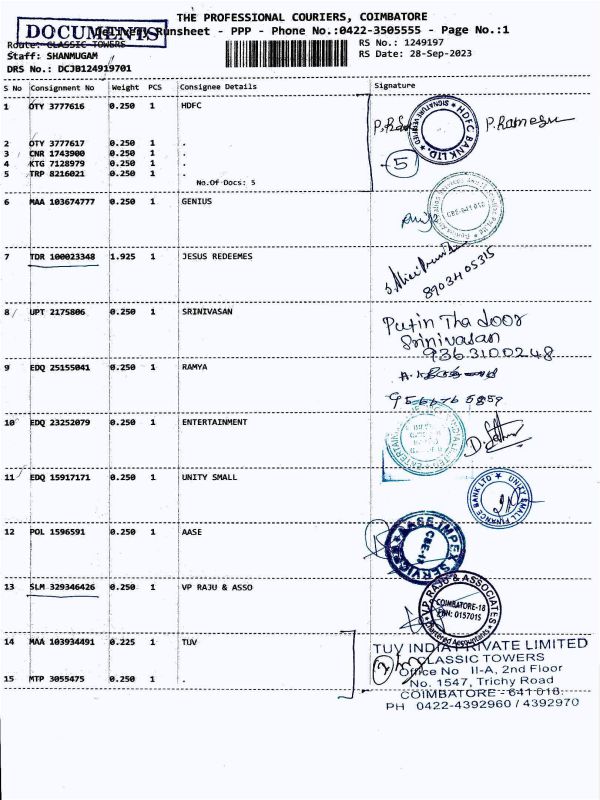 THE PROFESSIONAL COURIERS, COIMBATORE
DOCUMENTS
Delivery Runsheet - PPP - Phone No.:0422-3505555 - Page No.:1
Route: CLASSIC TOWERS
RS No.: 1249197
Staff: SHANMUGAM
RS Date: 28-Sep-2023
DRS No.: DCJB124919701
S No Consignment No Weight PCS Consignee Details Signature
1 OTY 3777616 0.250 1 HDFC
HDFC BANK LTD. SIGNATURE VERIFIED
P. Ramesh
2 OTY 3777617 0.250 1 .
3 CNR 1743900 0.250 1 .
4 KTG 7128979 0.250 1 .
5 TRP 8216021 0.250 1 .
5
No.Of Docs: 5
6 MAA 103674777 0.250 1 GENIUS
CBE-641 018
7 TDR 100023348 1.925 1 JESUS REDEEMES
8903405315
8 UPT 2175806 0.250 1 SRINIVASAN
Put in The door
Srinivasan
9363100248
9 EDQ 25155041 0.250 1 RAMYA
9566765859
10 EDQ 23252079 0.250 1 ENTERTAINMENT
11 EDQ 15917171 0.250 1 UNITY SMALL
UNITY SMALL FINANCE BANK LTD
12 POL 1596591 0.250 1 AASE
AASE IMPEX SERVICES
CBE-18
13 SLM 329346426 0.250 1 VP RAJU & ASSO
VP RAJU & ASSOCIATES
COIMBATORE-18
FRN: 015701S
Chartered Accountants
14 MAA 103934491 0.225 1 TUV
TUV INDIA PRIVATE LIMITED
CLASSIC TOWERS
Office No II-A, 2nd Floor
15 MTP 3055475 0.250 1 .
No. 1547, Trichy Road
COIMBATORE - 641 018.
PH 0422-4392960 / 4392970